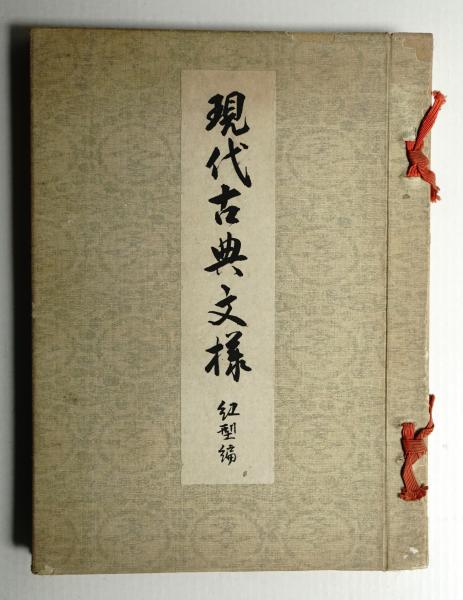 現代古典文様
紅型編